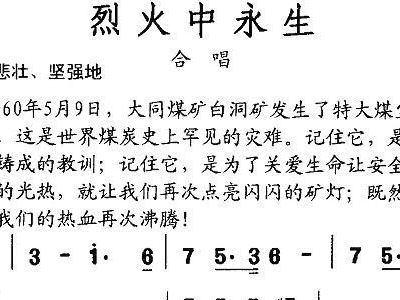 烈火中永生
合唱
悲壮、坚强地
60年5月9日，大同煤矿白洞矿发生了特大煤尘
、这是世界煤炭史上罕见的灾难。记住它，是
铸成的教训；记住它，是为了关爱生命让安全
的光热，就让我们再次点亮闪闪的矿灯；既然
我们的热血再次沸腾！
3 - i· 6 | 7 5·3 6 - | 7 5·